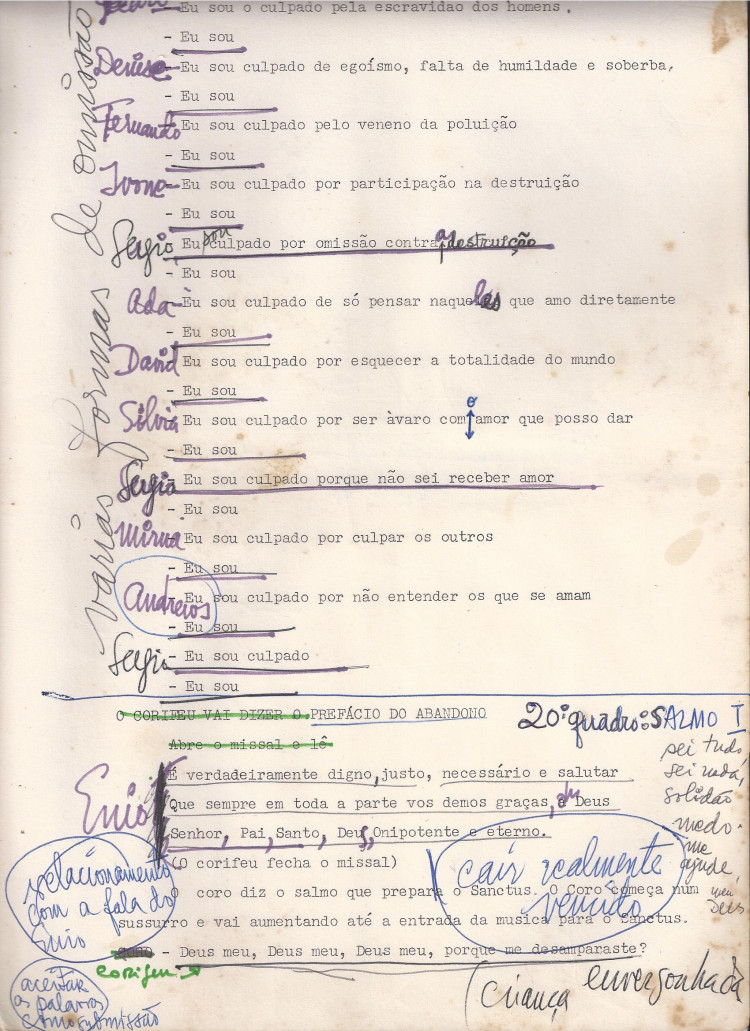 Eu sou o culpado pela escravidão dos homens.
- Eu sou
Denise - Eu sou culpado de egoísmo, falta de humildade e soberba,
- Eu sou
Fernando - Eu sou culpado pelo veneno da poluição
- Eu sou
Ivone - Eu sou culpado por participação na destruição
- Eu sou
Sergio Eu sou culpado por omissão contra a destruição
- Eu sou
Ada - Eu sou culpado de só pensar naqueles que amo diretamente
- Eu sou
David Eu sou culpado por esquecer a totalidade do mundo
- Eu sou
Silvia Eu sou culpado por ser àvaro com o amor que posso dar
- Eu sou
Sergio - Eu sou culpado porque não sei receber amor
- Eu sou
Mirna Eu sou culpado por culpar os outros
- Eu sou
Andreios - Eu sou culpado por não entender os que se amam
- Eu sou
Sergio - Eu sou culpado
- Eu sou
várias formas de omissão
O CORIFEU VAI DIZER O PREFÁCIO DO ABANDONO
20º quadro: SALMO I
Abre o missal e lê
sei tudo
sei nada,
solidão
medo.
me
ajude,
meu
Deus
Enio
É verdadeiramente digno, justo, necessário e salutar
Que sempre em toda a parte vos demos graças, Deus
Senhor, Pai, Santo, Deus, Onipotente e eterno.
(O corifeu fecha o missal)
O coro diz o salmo que prepara o Sanctus. O Coro começa num
sussurro e vai aumentando até a entrada da musica para o Sanctus.
cair realmente
vencido
relacionamento
com a fala do
Enio
- Deus meu, Deus meu, Deus meu, porque me desamparaste?
corifeu
aceitar
as palavras
como submissão
(criança envergonhada